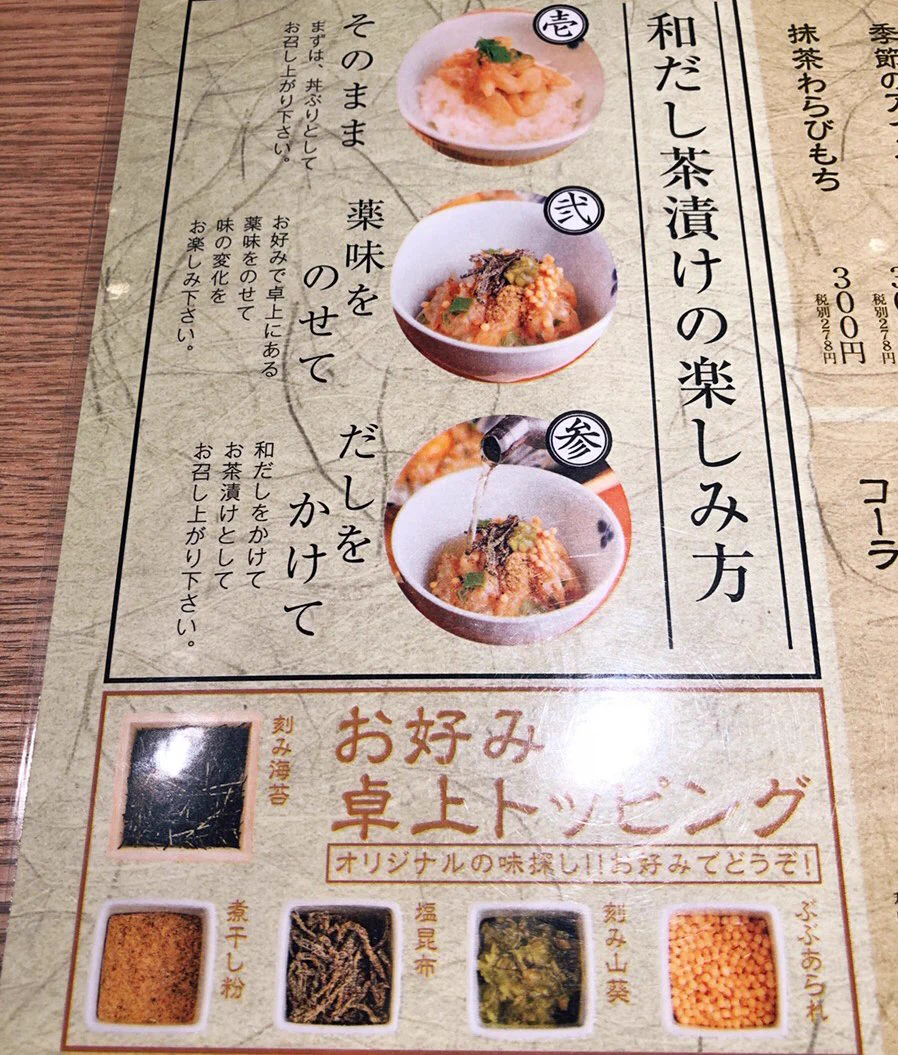 季節のア
抹茶わらびもち
300円
税別278円
税別278円
コーラ
和だし茶漬けの楽しみ方
壱
そのまま
まずは、丼ぶりとして
お召し上がり下さい。
弐
薬味を
のせて
お好みで卓上にある
薬味をのせて
味の変化を
お楽しみ下さい。
参
だしを
かけて
和だしをかけて
お茶漬けとして
お召し上がり下さい。
お好み
卓上トッピング
オリジナルの味探し!!お好みでどうぞ!
刻み海苔
ぶぶあられ
刻み山葵
塩昆布
煮干し粉